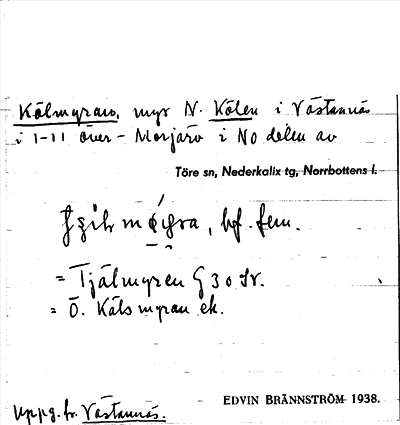 Kälmyran, myr N. Kölen i Västannäs
i 1-11 över - Morjärv i NO delen av
Töre sn, Nederkalix tg, Norrbottens l.
bf. fem.
= Tjälmyren G 30 Sv.
= Ö. Käls myran ek.
Uppg. fr. Västannäs.
EDVIN BRÄNNSTRÖM 1938.